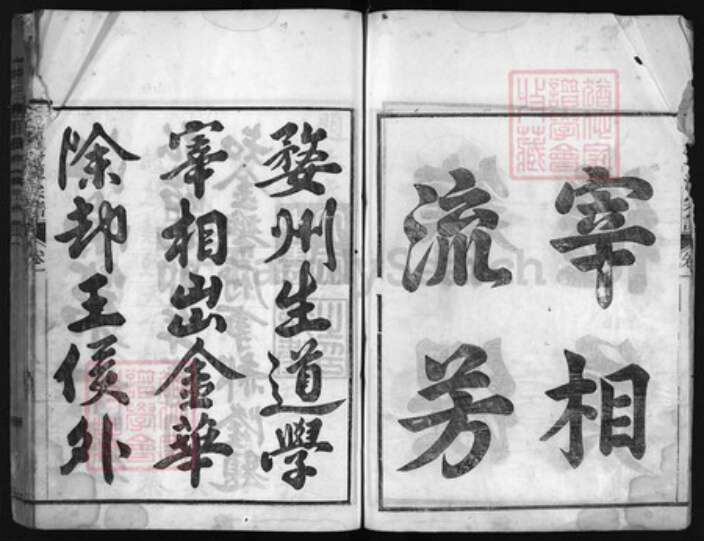 宰相
流芳
婺州生道學
宰相出金華
除却王侯外